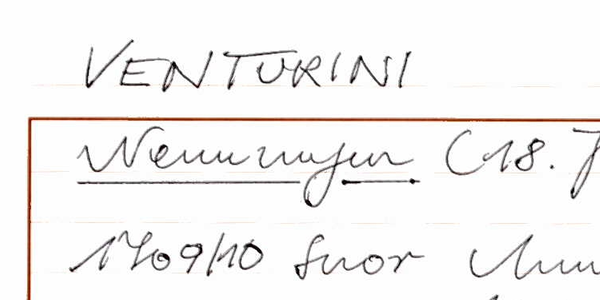 VENTURINI
Nennungen (18. J
1709/10 Suor